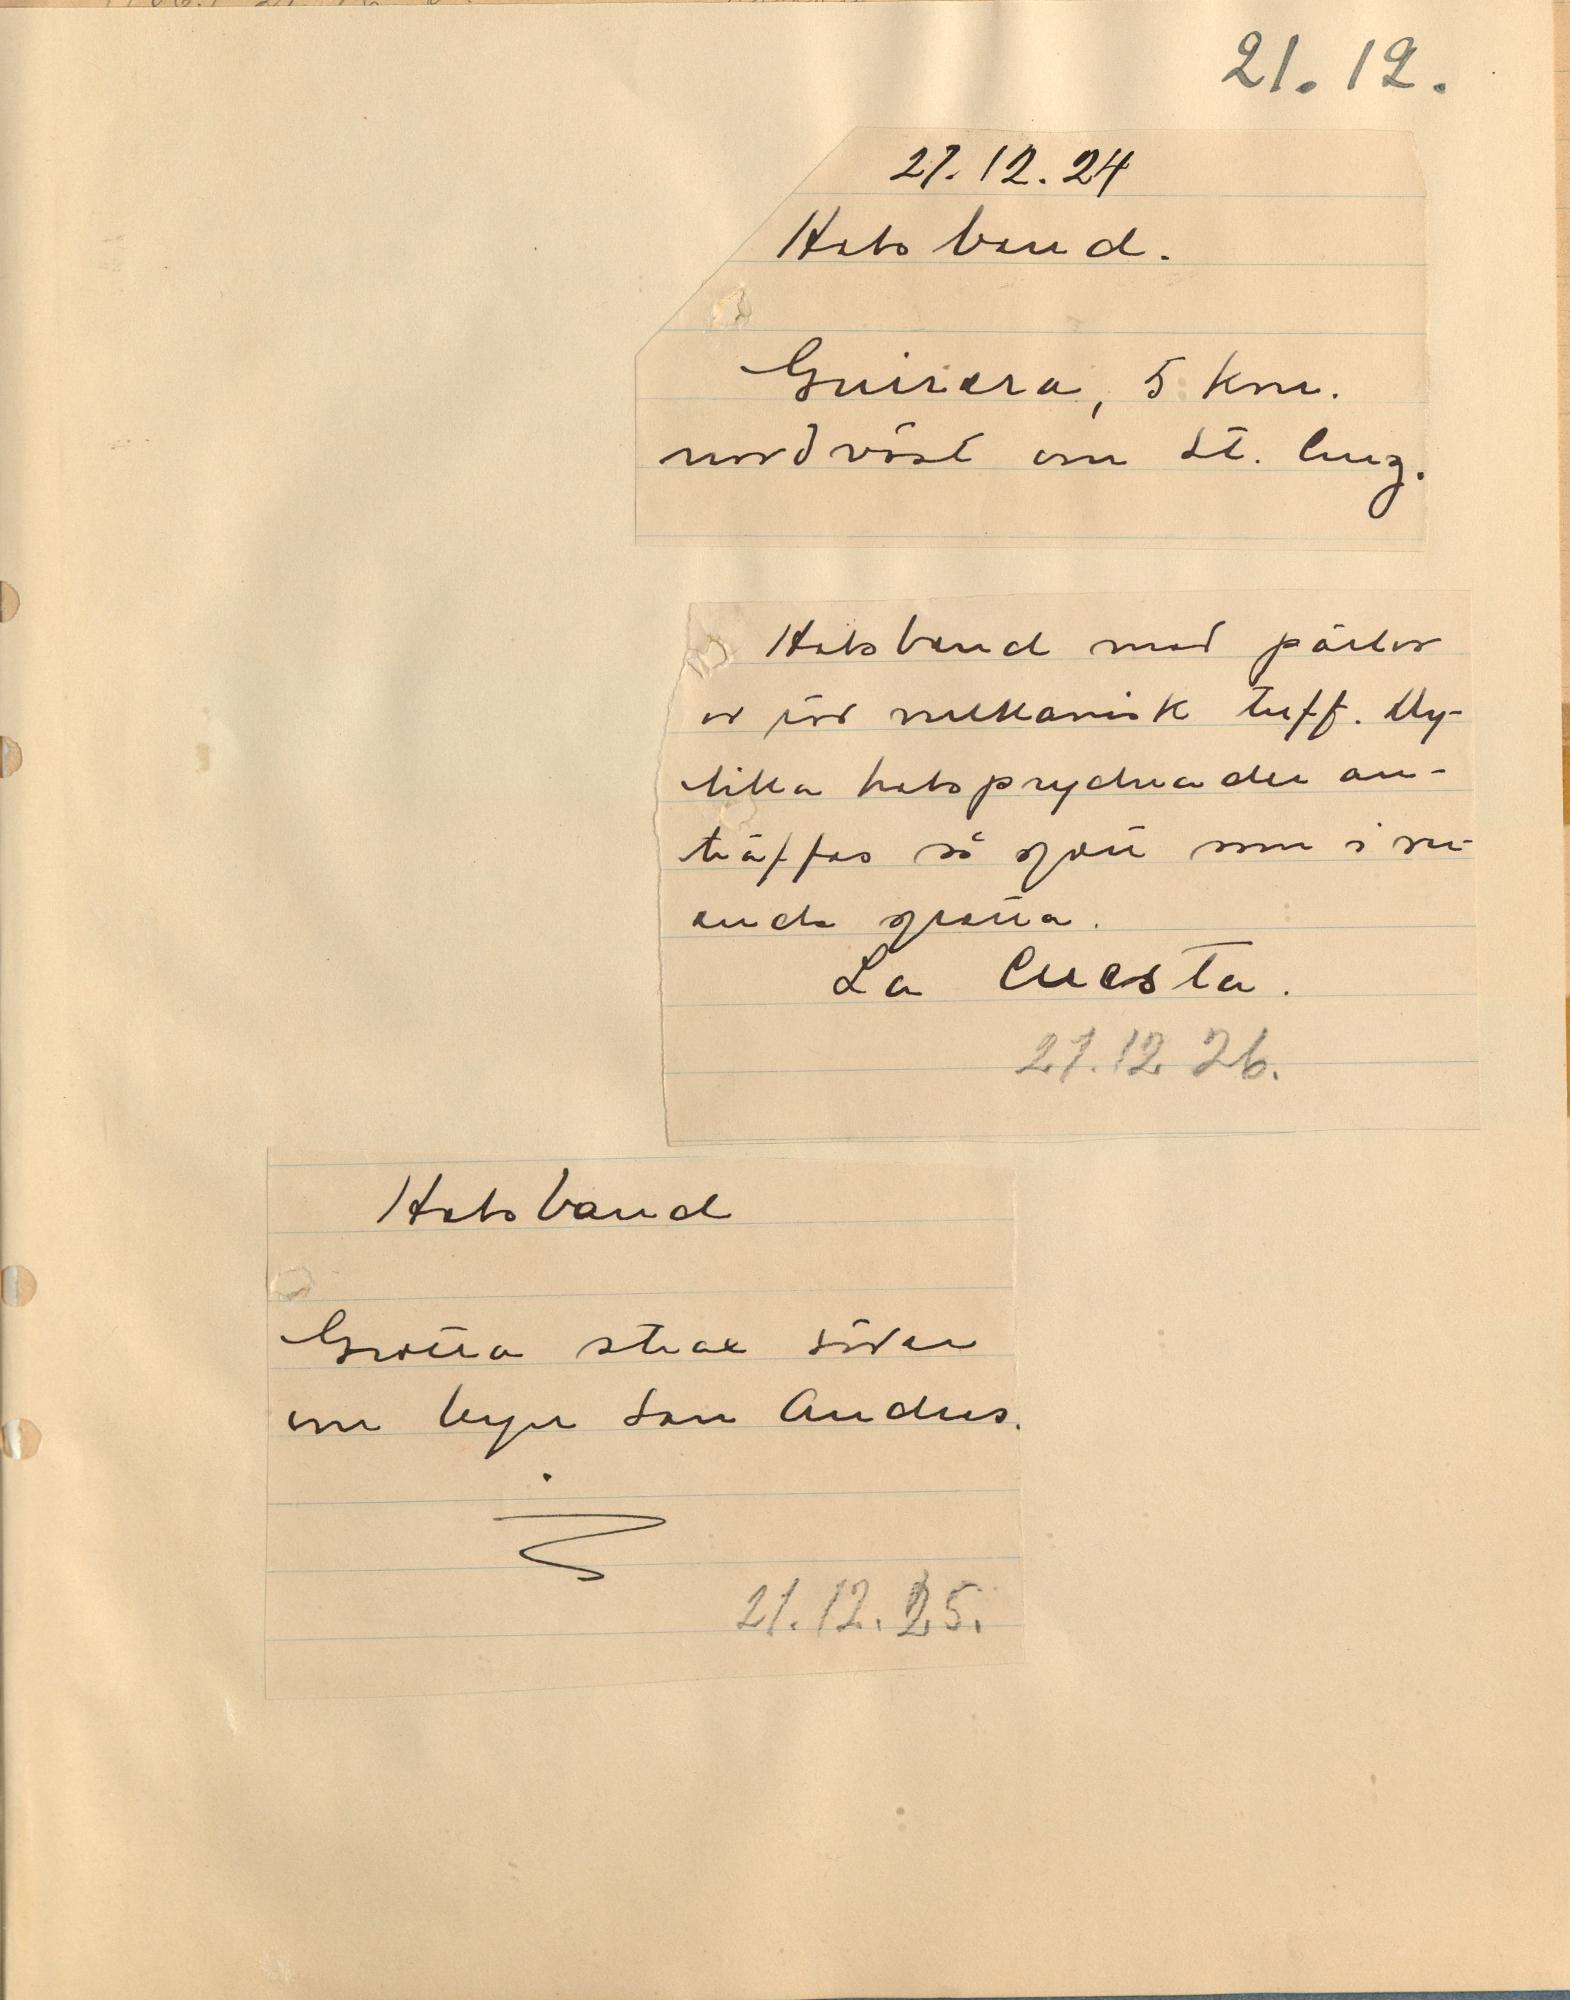 21.12.
21.12.24
Halsband.
Guirera, 5 km.
nordväst om St. Cruz.
Halsband med pärlor
av röd vulkanisk tuff. Dy-
lika halsprydnader an-
träffas så gott som i
enda grotta.
La Cuesta.
21.12 26.
Halsband
Grotta strax söder
om byn San Andres.
21.12.25.